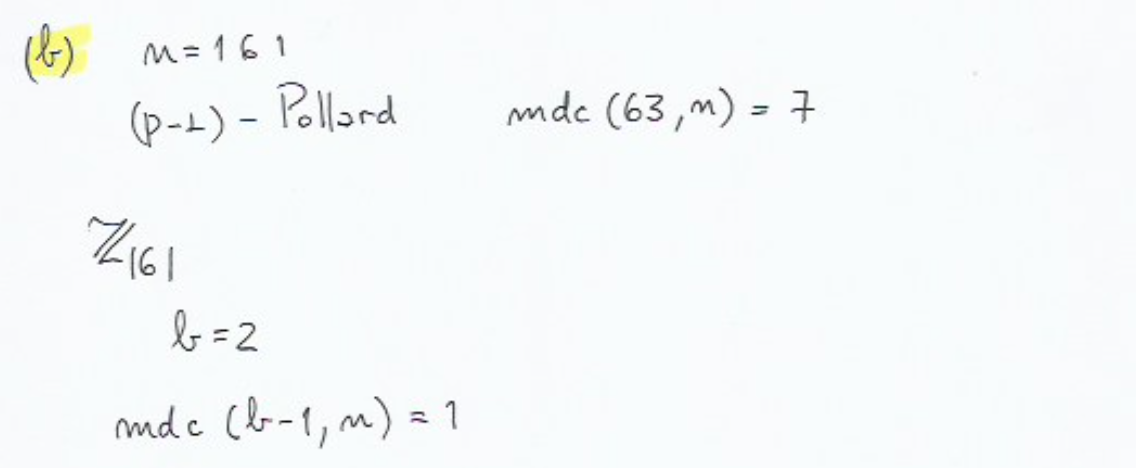 (b) n = 161
(p-1) - Pollard mdc (63, n) = 7
ℤ161
b = 2
mdc (b-1, n) = 1